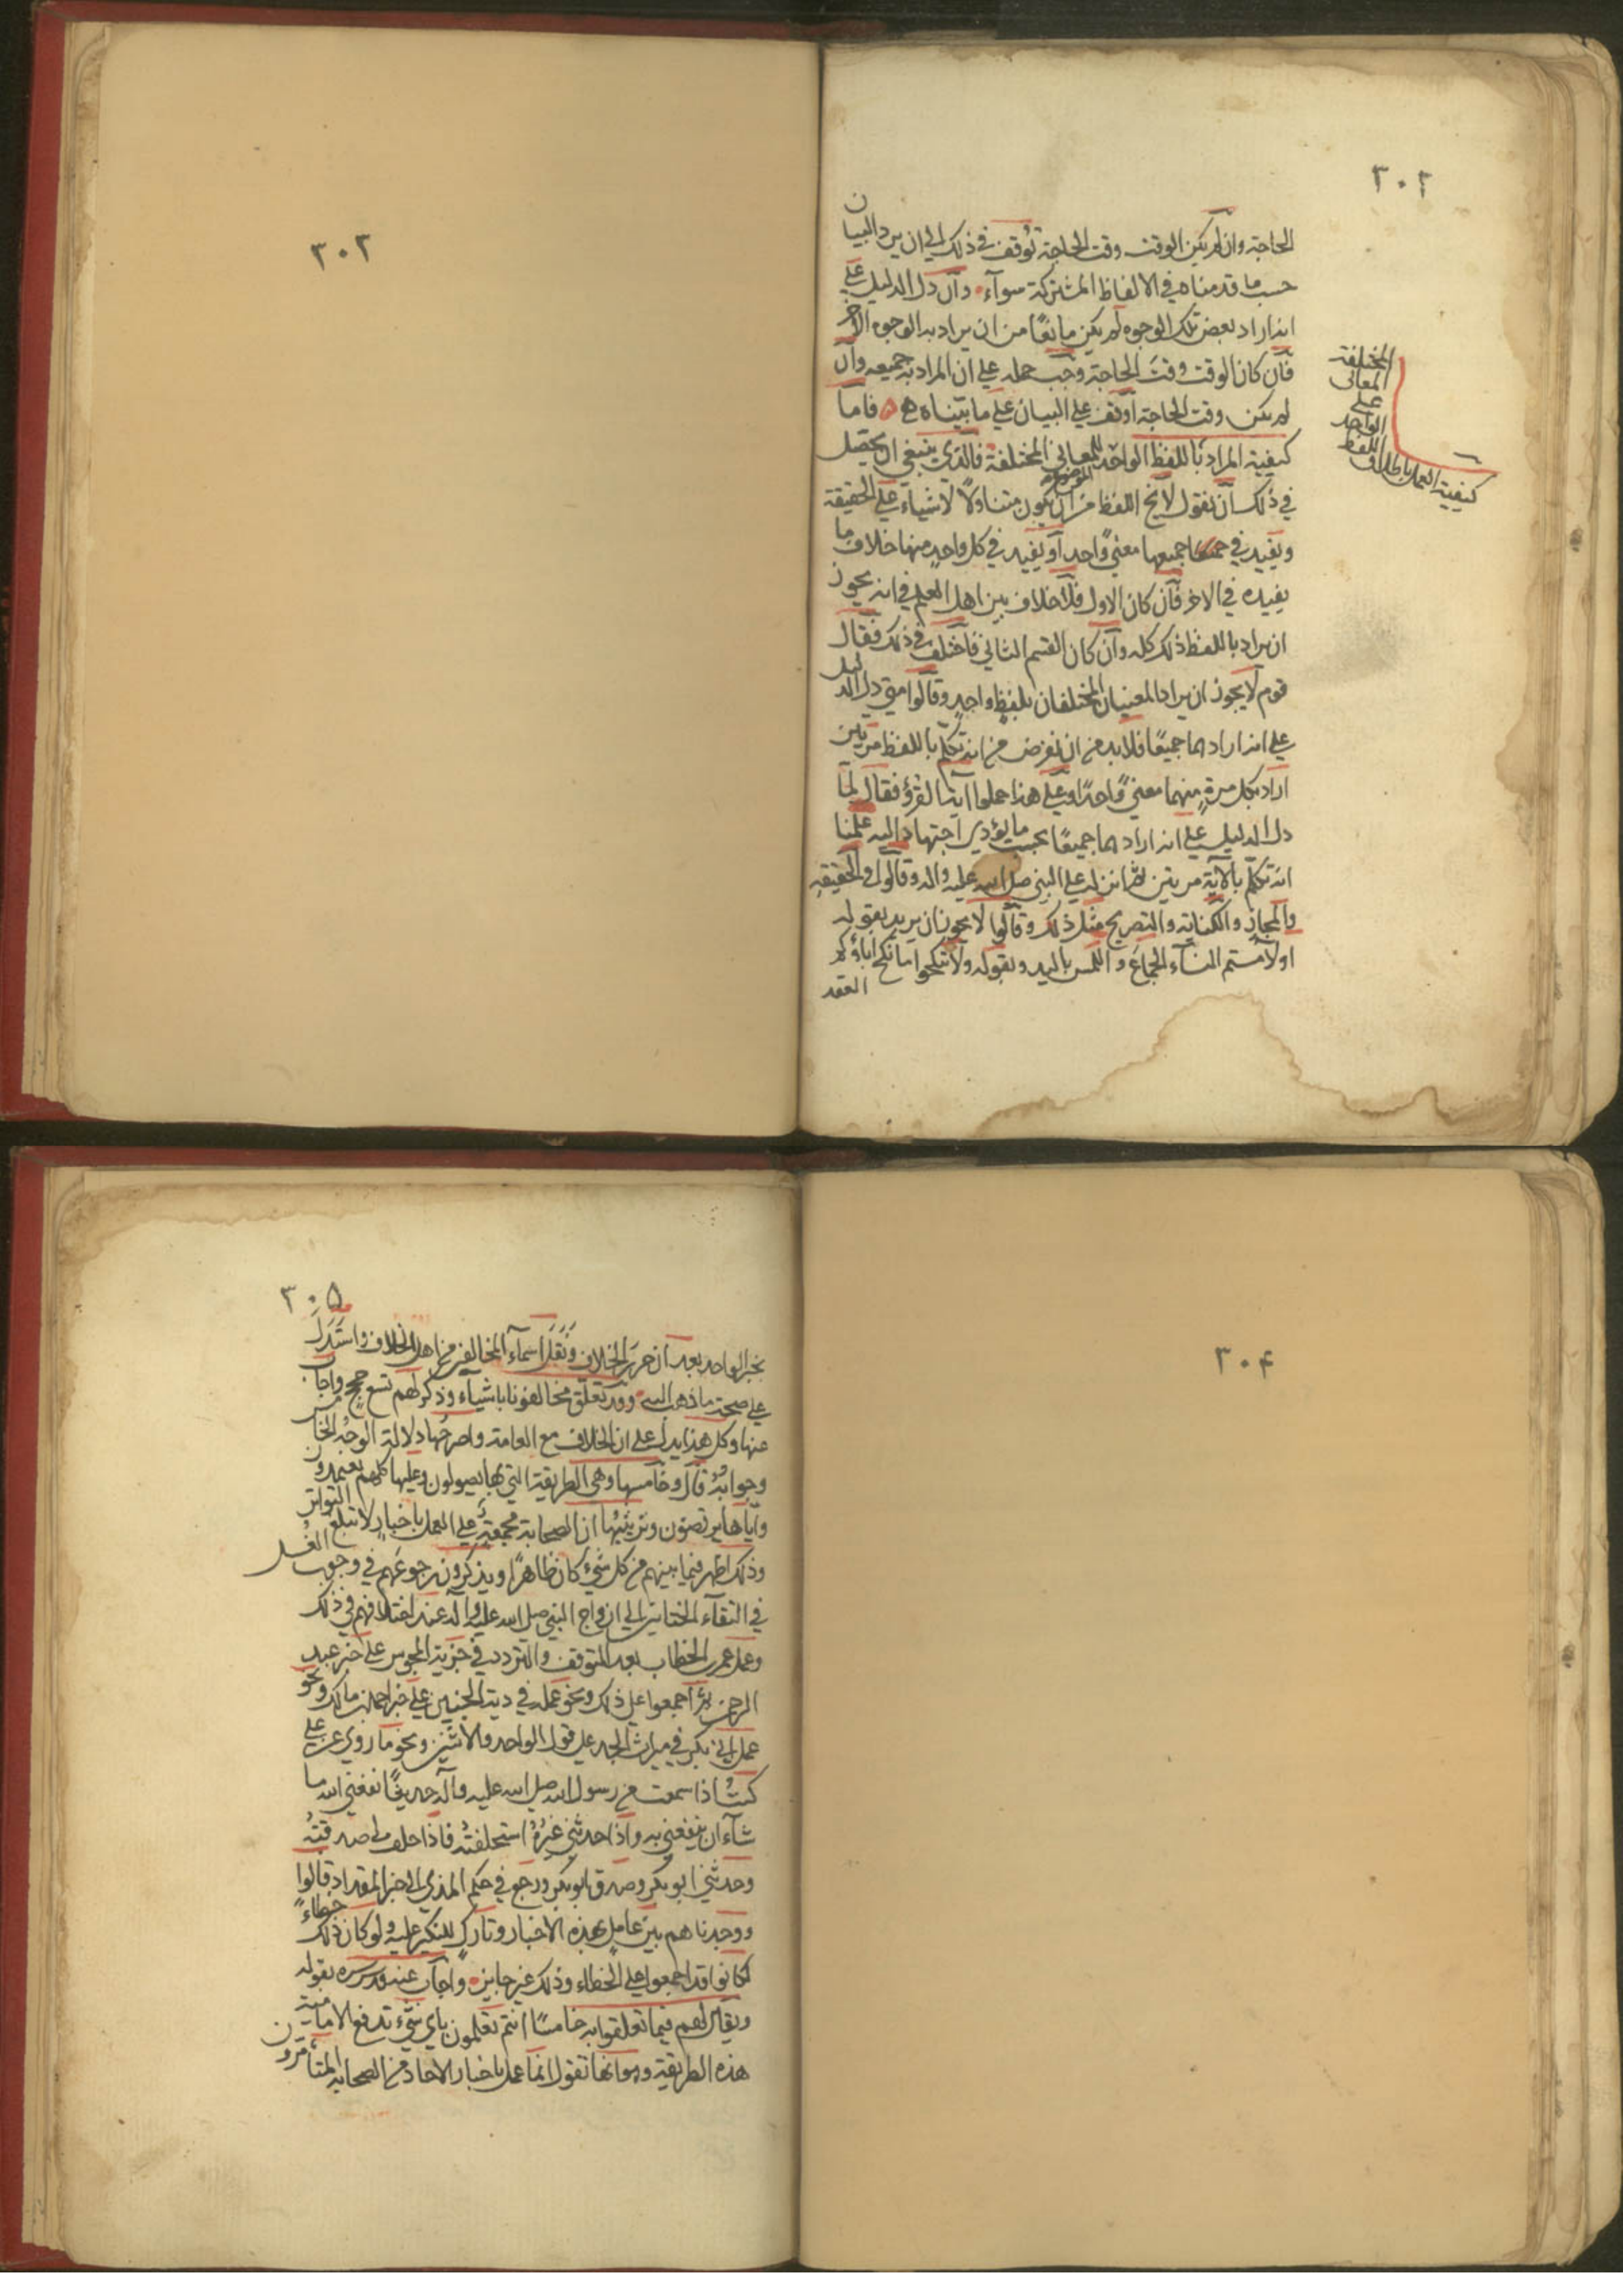 ٣٠٢
الحاجة وان لم يكن الوقت وقت الحاجة توقف في ذلك الي ان يرد البيان
حسب ما قدمناه في الالفاظ المشتركة سوآء وان دل الدليل علي
انه اراد بعض تلك الوجوه لم يكن مانعًا من ان يراد به الوجوه الاخر
فان كان الوقت وقت الحاجة وجب حمله علي ان المراد به جميعه وان
لم يكن وقت الحاجة اوقف علي البيان علي ما بيّناه فاما
كيفية المراد باللفظ الواحد للمعاني المختلفة فالذي ينبغي ان يحصل
في ذلك ان نقول لايخ اللفظ من ان يكون متناولًا لاشيآء علي الحقيقة
ويفيد في جميعها معنيً واحد او يفيد في كل واحد منها خلاف ما
يفيده في الاخر فان كان الاول فلا خلاف بين اهل العلم في انه يجوز
ان يراد باللفظ ذلك كله وان كان القسم الثاني فاختلف في ذلك فقال
قوم لايجوز ان يراد المعنيان المختلفان بلفظ واحدٍ وقالوا متي دل الدليل
علي انه اراد هما جميعًا فلابد من ان نفرض من انه تكلم باللفظ مرتين
اراد بكل مرةٍ منهما معنيً واحدًا وعلي هذا حملوا آية القرؤ فقال لما
دل الدليل علي انه اراد هما جميعًا بحسب ما يؤدي اجتهاد اليه علمنا
انه تكلم بالآية مرتين ثم انزله علي النبي صلي الله عليه واله وقالوا في الحقيقة
والمجاز والكناية والتصريح مثل ذلك وقالوا لا يجوز ان يريد بقوله
اولامستم النسآء الجماع واللمس باليد وبقوله ولا تنكحوا ما نكح اباؤكم
العقد
كيفية العمل باطلاق
اللفظ
الواحد
علي
المعاني
المختلفة
٣٠٣
٣٠٤
٣٠٥
بخبر الواحد بعد ان حرر الخلاف ونقل اسمآء المخالفين من اهل الخلاف واستدل
علي صحة ماذهب اليه وقد تعلق مخالفونا باشيآء وذكر لهم تسع حجج واجاب
عنها وكل هذا يدل علي ان الخلاف مع العامة واصرحها دلالة الوجه الخامس
وجوابه قال وخامسها وهي الطريقة التي بها يصولون وعليها كلهم يعتمدون
واياها يرتضون وترتيبها ان الصحابة مجمعة علي العمل باخبارٍ لاتبلغ التواتر
وذلك اظهر فيما بينهم من كل شيء كان ظاهرًا ويذكرون رجوعهم في وجوب الغسل
في التقآء الختانين الي ازواج النبي صلي الله عليه وآله عند اختلافهم في ذلك
وعمل عمر بن الخطاب بعد التوقف والتردد في جزية المجوس علي خبر عبد
الرحمن ثم اجمعوا علي ذلك ونحو عمله في دية الجنين علي خبر حمل بن مالك ونحو
عمل ابي بكر في ميراث الجد علي قول الواحد والاثنين ونحو ما روي عن علي
كنت اذا سمعت من رسول الله صلي الله عليه وآله حديثًا نفعني الله ما
شآء ان ينفعني به واذا حدثني غيره استحلفته فاذا حلف لي صدقته
وحدثني ابو بكر وصدق ابو بكر ورجع في حكم المذي الي خبر المقداد قالوا
ووجدناهم بين عاملٍ بهذه الاخبار وتاركٍ للنكير عليه ولو كان ذلك خطاءً
لكانوا قد اجمعوا علي الخطاء وذلك غير جايز واجاب عنه قدس سره بقوله
ويقال لهم فيما تعلقوا به خامسًا انتم تعلمون باي شيء تدفع الامامية
هذه الطريقة وهو انها تقول انما عمل باخبار الاحاد من الصحابة المتأمرون